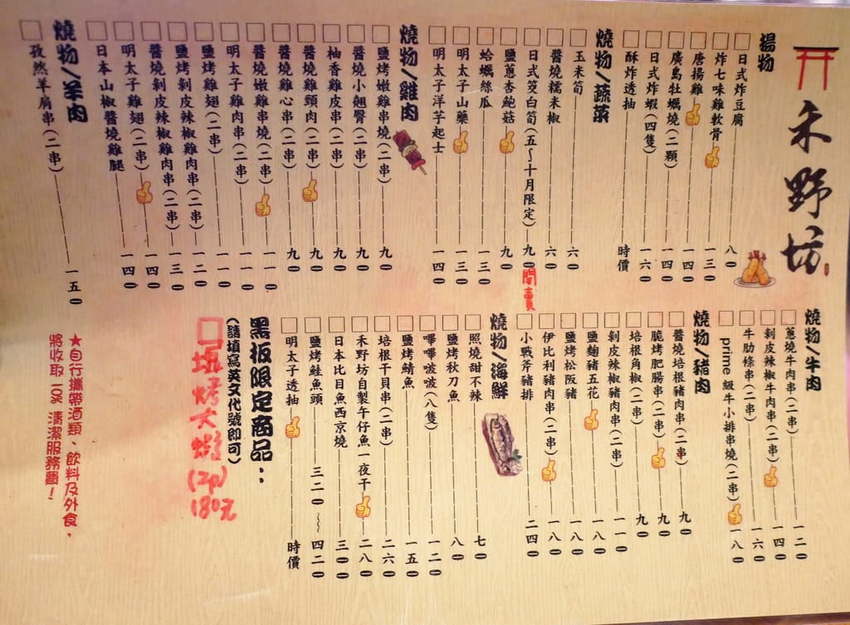 禾野坊
揚物
日式炸豆腐 八0
炸七味雞軟骨 一三0
唐揚雞 一四0
廣島牡蠣燒(二顆) 一四0
日式炸蝦(四隻) 一六0
酥炸透抽 時價
燒物/蔬菜
玉米筍 六0
醬燒糯米椒 六0
日式筊白筍(五~十月限定) 九0 開賣
鹽蔥杏鮑菇 九0
蛤蠣絲瓜 一三0
明太子山藥 一三0
明太子洋芋起士 一四0
燒物/雞肉
鹽烤嫩雞串燒(二串) 九0
醬燒小翹臀(二串) 九0
柚香雞皮串(二串) 九0
醬燒雞頸肉(二串) 九0
醬燒雞心串(二串) 九0
醬燒嫩雞串燒(二串) 一一0
明太子雞肉串(二串) 一一0
鹽烤雞翅(二串) 一一0
鹽烤剝皮辣椒雞肉串(二串) 一二0
醬燒剝皮辣椒雞肉串(二串) 一三0
明太子雞翅(二串) 一四0
日本山椒醬燒雞腿 一四0
燒物/羊肉
孜然羊肩串(二串) 一五0
燒物/牛肉
蔥燒牛肉串(二串) 一二0
剝皮辣椒牛肉串(二串) 一四0
牛肋條串(二串) 一六0
prime級牛小排串燒(二串) 一八0
燒物/豬肉
醬燒培根豬肉串(二串) 九0
脆烤肥腸串(二串) 九0
培根角椒(二串) 九0
剝皮辣椒豬肉串(二串) 一一0
鹽麴豬五花 一八0
鹽烤松阪豬 一八0
伊比利豬肉串(二串) 一八0
小戰斧豬排 二四0
燒物/海鮮
照燒甜不辣 七0
鹽烤秋刀魚 八0
嗶嗶啵啵(八隻) 一二0
鹽烤鯖魚 一五0
培根干貝串(二串) 二六0
禾野坊自製午仔魚一夜干 二八0
日本比目魚西京燒 三00
鹽烤鮭魚頭 三二0~四二0
明太子透抽 時價
黑板限定商品：
(請填寫英文代號即可)
塩烤大蝦(2p)180元
★自行攜帶酒類、飲料及外食，
將收取100元清潔服務費！